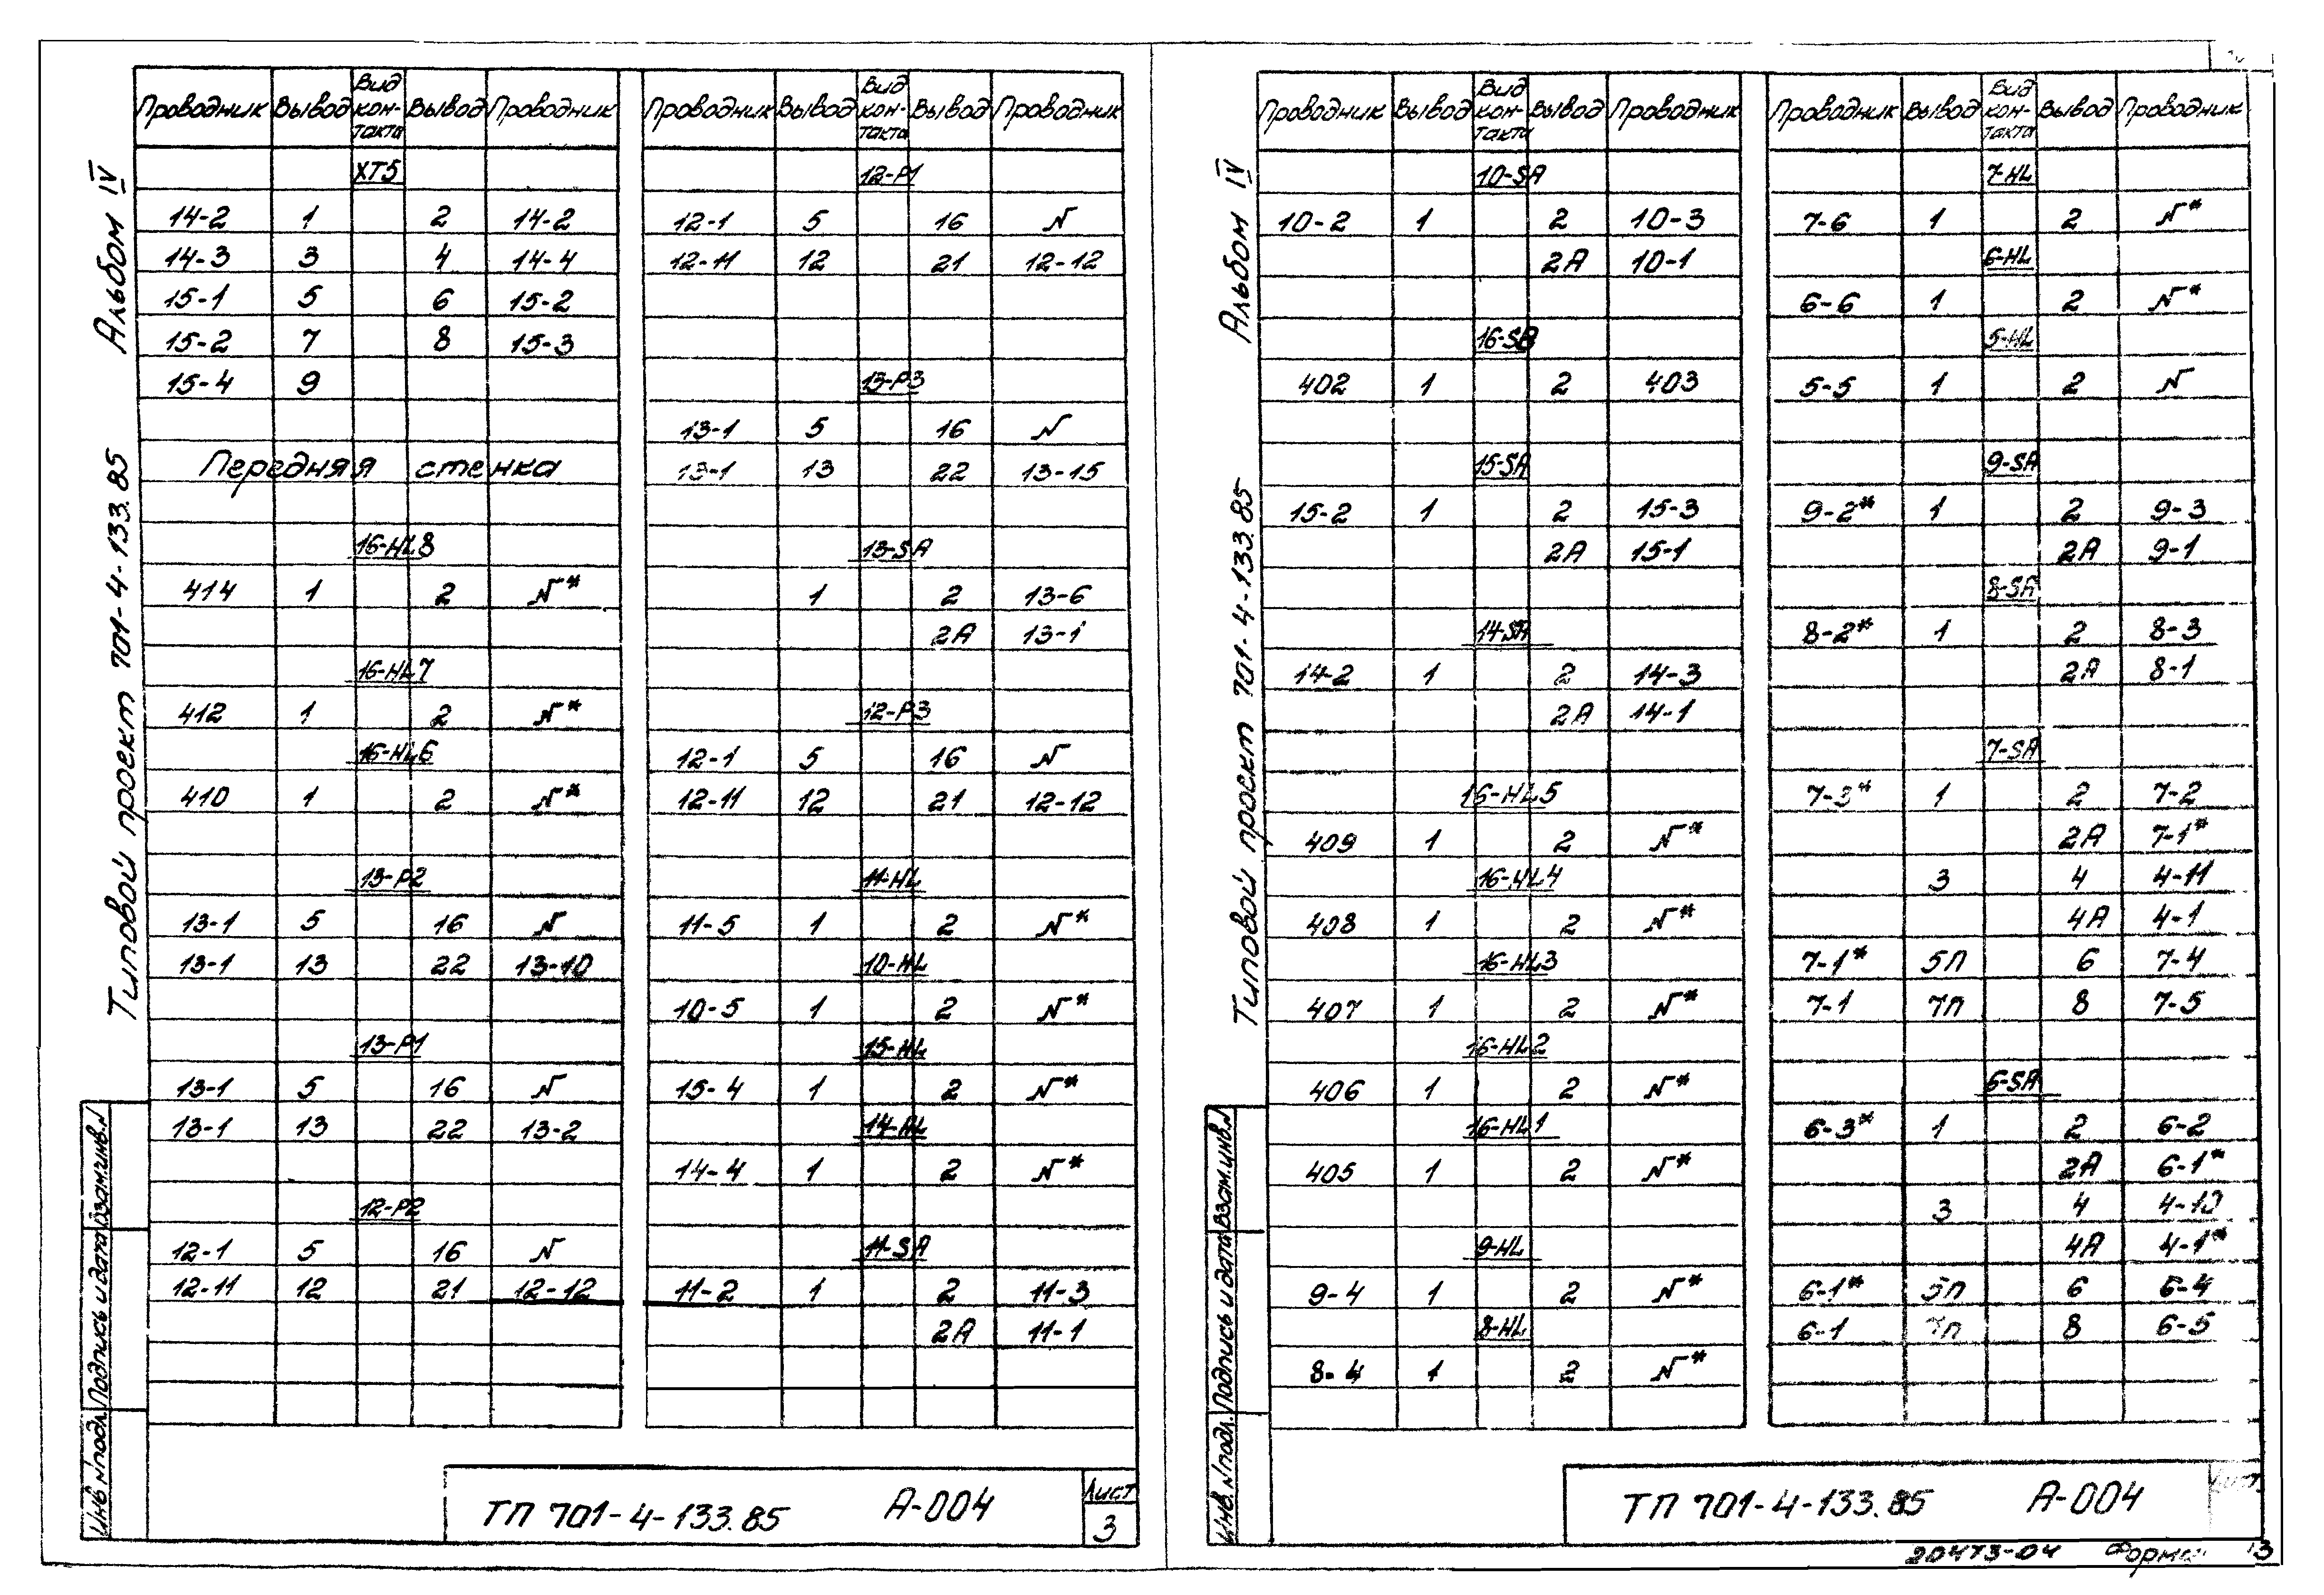 Альбом IV
Типовой проект 701-4-133.85
Проводник Вывод Вид контакта Вывод Проводник
XT5
14-2 1 2 14-2
14-3 3 4 14-4
15-1 5 6 15-2
15-2 7 8 15-3
15-4 9
Передняя стенка
16-HL8
414 1 2 N*
16-HL7
412 1 2 N*
16-HL6
410 1 2 N*
13-P2
13-1 5 16 N
13-1 13 22 13-10
13-P1
13-1 5 16 N
13-1 13 22 13-2
12-P2
12-1 5 16 N
12-11 12 21 12-12
Проводник Вывод Вид контакта Вывод Проводник
12-P1
12-1 5 16 N
12-11 12 21 12-12
13-P3
13-1 5 16 N
13-1 13 22 13-15
13-SA
1 2 13-6
2A 13-1
12-P3
12-1 5 16 N
12-11 12 21 12-12
11-HL
11-5 1 2 N*
10-HL
10-5 1 2 N*
15-HL
15-4 1 2 N*
14-HL
14-4 1 2 N*
11-SA
11-2 1 2 11-3
2A 11-1
Инв. N подл. Подпись и дата Взам.инв.N
ТП 701-4-133.85 А-004
Лист
3
Альбом IV
Типовой проект 701-4-133.85
Проводник Вывод Вид контакта Вывод Проводник
10-SA
10-2 1 2 10-3
2A 10-1
402 1 2 403
15-SA
15-2 1 2 15-3
2A 15-1
14-SA
14-2 1 2 14-3
2A 14-1
16-HL5
409 1 2 N*
16-HL4
408 1 2 N*
16-HL3
407 1 2 N*
16-HL2
406 1 2 N*
16-HL1
405 1 2 N*
9-HL
9-4 1 2 N*
8-HL
8-4 1 2 N*
Проводник Вывод Вид контакта Вывод Проводник
7-HL
7-6 1 2 N*
6-HL
6-6 1 2 N*
5-HL
5-5 1 2 N
9-SA
9-2* 1 2 9-3
2A 9-1
8-SA
8-2* 1 2 8-3
2A 8-1
7-SA
7-3* 1 2 7-2
2A 7-1*
3 4 4-11
4A 4-1
7-1* 5П 6 7-4
7-1 7П 8 7-5
6-SA
6-3* 1 2 6-2
2A 6-1*
3 4 4-10
4A 4-1*
6-1* 5П 6 6-4
6-1 7П 8 6-5
Инв. N подл. Подпись и дата Взам.инв.N
ТП 701-4-133.85 А-004
Лист
20473-04